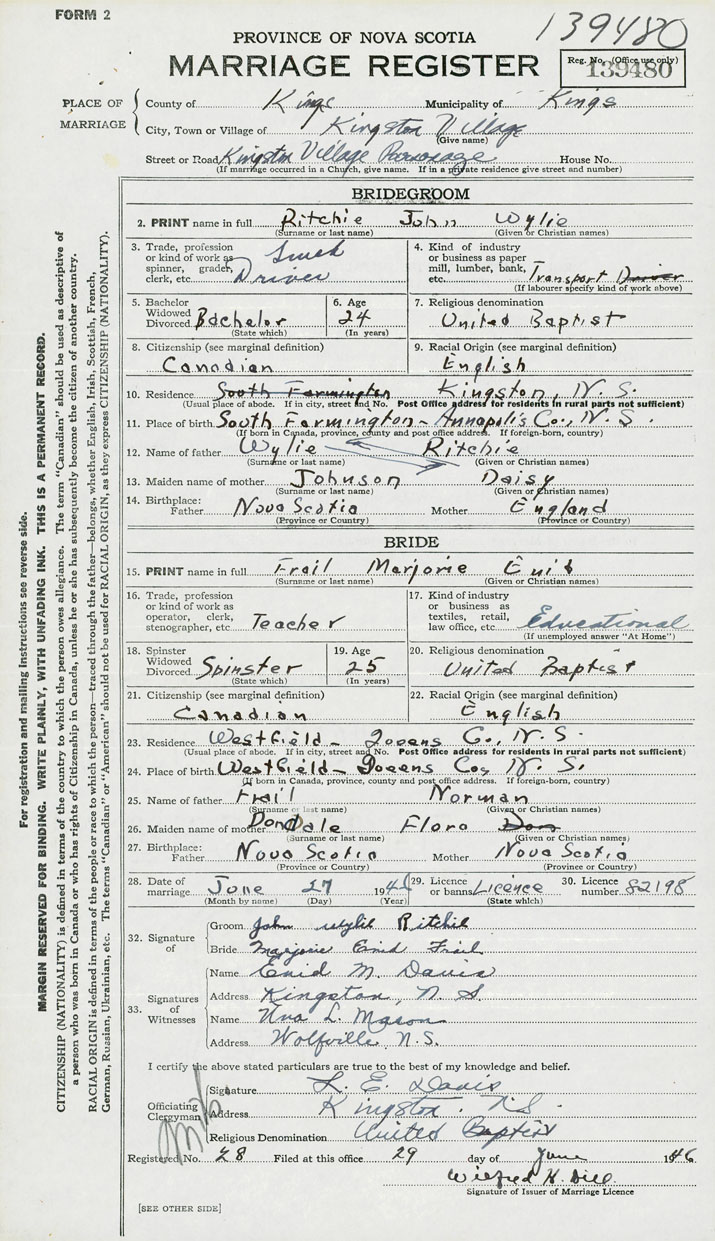 FORM 2
139480
PROVINCE OF NOVA SCOTIA
MARRIAGE REGISTER
Reg. No. (Office use only)
139480
PLACE OF MARRIAGE
County of Kings Municipality of Kings
City, Town or Village of Kingston Village
(Give name)
Street or Road Kingston Village Parsonage House No.
(If marriage occurred in a Church, give name. If in a private residence give street and number)
BRIDEGROOM
2. PRINT name in full Ritchie John Wylie
(Surname or last name) (Given or Christian names)
3. Trade, profession or kind of work as spinner, grader, clerk, etc. Truck Driver
4. Kind of industry or business as paper mill, lumber, bank, etc. Transport Driver
(If labourer specify kind of work above)
5. Bachelor Widowed Divorced Bachelor
(State which)
6. Age 24
(In years)
7. Religious denomination
United Baptist
8. Citizenship (see marginal definition)
Canadian
9. Racial Origin (see marginal definition)
English
10. Residence South Farmington Kingston, N.S.
(Usual place of abode. If in city, street and No. Post Office address for residents in rural parts not sufficient)
11. Place of birth South Farmington - Annapolis Co., N.S.
(If born in Canada, province, county and post office address. If foreign-born, country)
12. Name of father Wylie Ritchie
(Surname or last name) (Given or Christian names)
13. Maiden name of mother Johnson Daisy
(Surname or last name) (Given or Christian names)
14. Birthplace: Father Nova Scotia Mother England
(Province or Country) (Province or Country)
BRIDE
15. PRINT name in full Frail Marjorie Enid
(Surname or last name) (Given or Christian names)
16. Trade, profession or kind of work as operator, clerk, stenographer, etc. Teacher
17. Kind of industry or business as textiles, retail, law office, etc. Educational
(If unemployed answer "At Home")
18. Spinster Widowed Divorced Spinster
(State which)
19. Age 25
(In years)
20. Religious denomination
United Baptist
21. Citizenship (see marginal definition)
Canadian
22. Racial Origin (see marginal definition)
English
23. Residence Westfield - Queens Co., N.S.
(Usual place of abode. If in city, street and No. Post Office address for residents in rural parts not sufficient)
24. Place of birth Westfield - Queens Co., N.S.
(If born in Canada, province, county and post office address. If foreign-born, country)
25. Name of father Frail Norman
(Surname or last name) (Given or Christian names)
26. Maiden name of mother Dondale Flora Don
(Surname or last name) (Given or Christian names)
27. Birthplace: Father Nova Scotia Mother Nova Scotia
(Province or Country) (Province or Country)
28. Date of marriage June 27 194
(Month by name) (Day) (Year)
29. Licence or banns Licence
(State which)
30. Licence number 82198
32. Signature of
Groom John Wylie Ritchie
Bride Marjorie Enid Frail
33. Signatures of Witnesses
Name Enid M. Davis
Address Kingston, N.S.
Name Una L. Mason
Address Wolfville N.S.
I certify the above stated particulars are true to the best of my knowledge and belief.
Officiating Clergyman
Signature L. E. Davis
Address Kingston. N.S.
Religious Denomination United Baptist
Registered No. 28 Filed at this office 29 day of June 1946
Wilfred H. Dill
Signature of Issuer of Marriage Licence
[SEE OTHER SIDE]
For registration and mailing instructions see reverse side.
MARGIN RESERVED FOR BINDING. WRITE PLAINLY, WITH UNFADING INK. THIS IS A PERMANENT RECORD.
CITIZENSHIP (NATIONALITY) is defined in terms of the country to which the person owes allegiance. The term "Canadian" should be used as descriptive of
a person who was born in Canada or who has rights of Citizenship in Canada, unless he or she has subsequently become the citizen of another country.
RACIAL ORIGIN is defined in terms of the people or race to which the person—traced through the father—belongs, whether English, Irish, Scottish, French,
German, Russian, Ukrainian, etc. The terms "Canadian" or "American" should not be used for RACIAL ORIGIN, as they express CITIZENSHIP (NATIONALITY).